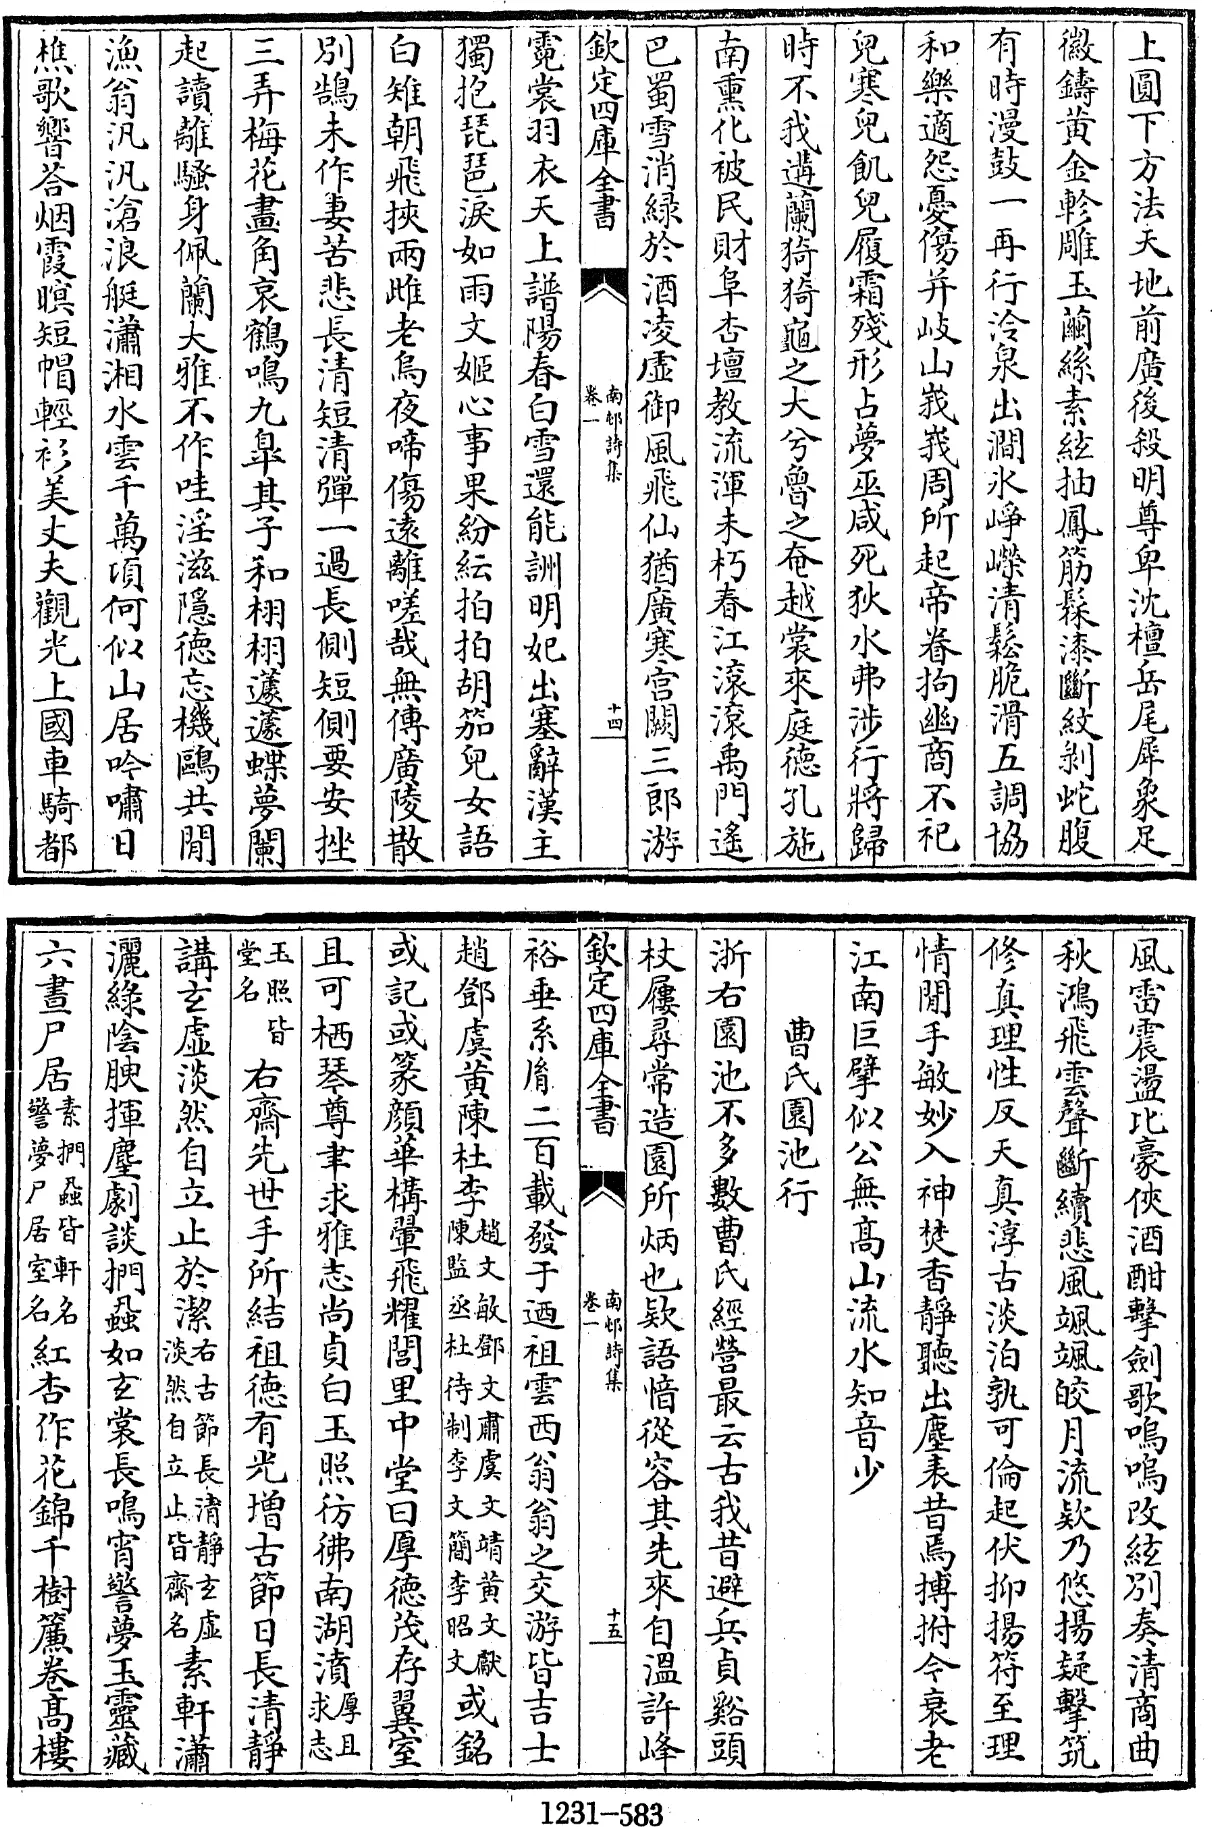 上圓下方法天地前廣後殺明尊卑沈檀岳尾犀象足
徽鑄黄金軫雕玉繭絲素絃抽鳳筋髹漆斷紋剥蛇腹
有時漫鼓一再行泠泉出澗氷崢嶸清鬆脆滑五調協
和樂適怨憂傷并岐山峩峩周所起帝眷拘幽商不祀
兒寒兒飢兒履霜殘形占夢巫咸死狄水弗涉行將歸
時不我遘蘭猗猗龜之大兮魯之奄越裳來庭德孔施
南熏化被民財阜杏壇教流渾未朽春江滚滚禹門遙
巴蜀雪消緑於酒凌虚御風飛仙猶廣寒宫闕三郎游
欽定四庫全書
南邨詩集
卷一
十四
霓裳羽衣天上譜陽春白雪還能詶明妃出塞辭漢主
獨抱琵琶淚如雨文姬心事果紛紜拍拍胡笳兒女語
白雉朝飛挾兩雌老烏夜啼傷遠離嗟哉無傳廣陵散
别鵠未作妻苦悲長清短清彈一過長側短側要安挫
三弄梅花畫角哀鶴鳴九臯其子和栩栩蘧蘧蝶夢闌
起讀離騷身佩蘭大雅不作哇淫滋隱德忘機鷗共閒
漁翁汎汎滄浪艇瀟湘水雲千萬頃何似山居吟嘯日
樵歌響荅烟霞暝短帽輕衫美丈夫觀光上國車騎都
風雷震盪比豪俠酒酣擊劍歌嗚嗚改絃别奏清商曲
秋鴻飛雲聲斷續悲風颯颯皎月流欵乃悠揚疑擊筑
修真理性反天真淳古淡泊孰可倫起伏抑揚符至理
情閒手敏妙入神焚香靜聽出塵表昔焉搏拊今衰老
江南巨擘似公無髙山流水知音少
曹氏園池行
浙右園池不多數曹氏經營最云古我昔避兵貞谿頭
杖屨尋常造園所炳也欵語愔從容其先來自溫許峰
欽定四庫全書
南邨詩集
卷一
十五
裕垂系胤二百載發于廼祖雲西翁翁之交游皆吉士
趙鄧虞黄陳杜李趙文敏鄧文肅虞文靖黄文獻陳監丞杜待制李文簡李昭文或銘
或記或篆顔華構翬飛耀閭里中堂曰厚德茂存翼室
且可栖琴尊聿求雅志尚貞白玉照彷彿南湖濆厚且求志
玉照皆堂名右齋先世手所結祖德有光増古節日長清靜
講玄虚淡然自立止於潔右古節長清靜玄虚淡然自立止皆齋名素軒瀟
灑緑陰腴揮麈劇談捫蝨如玄裳長鳴宵警夢玉靈藏
六晝尸居素捫蝨皆軒名警夢尸居室名紅杏作花錦千樹簾卷髙樓
1231-583